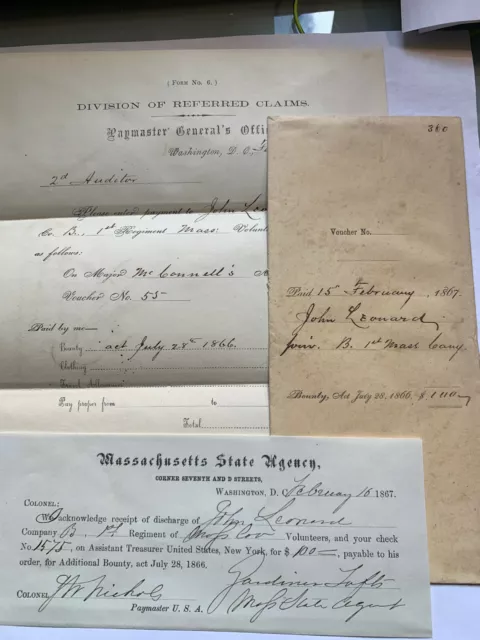 ( Form No. 6. )
DIVISION OF REFERRED CLAIMS.
Paymaster General's Offi
Washington, D. C.,
2d Auditor
Please noted payment to John Leo
Co. B., 1st Regiment Mass: Volunt
as follows:
On Major McConnell's
Voucher No. 55
Paid by me
Bounty act July 28th 1866.
Clothing
Travel Allowance
Pay proper from to
Total
360
Voucher No.
Paid 15th February, 1867.
John Leonard
priv. B. 1st Mass Cavy
Bounty, Act July 28, 1866, $100
Massachusetts State Agency,
CORNER SEVENTH AND D STREETS,
WASHINGTON, D. C. February 16 1867.
COLONEL:
We acknowledge receipt of discharge of John Leonard
Company B, 1st Regiment of Mass Cav Volunteers, and your check
No. 1575, on Assistant Treasurer United States, New York, for $100, payable to his
order, for Additional Bounty, act July 28, 1866.
Gardiner Tufts
Colonel J W Nichols
Paymaster U. S. A.
Mass State Agent